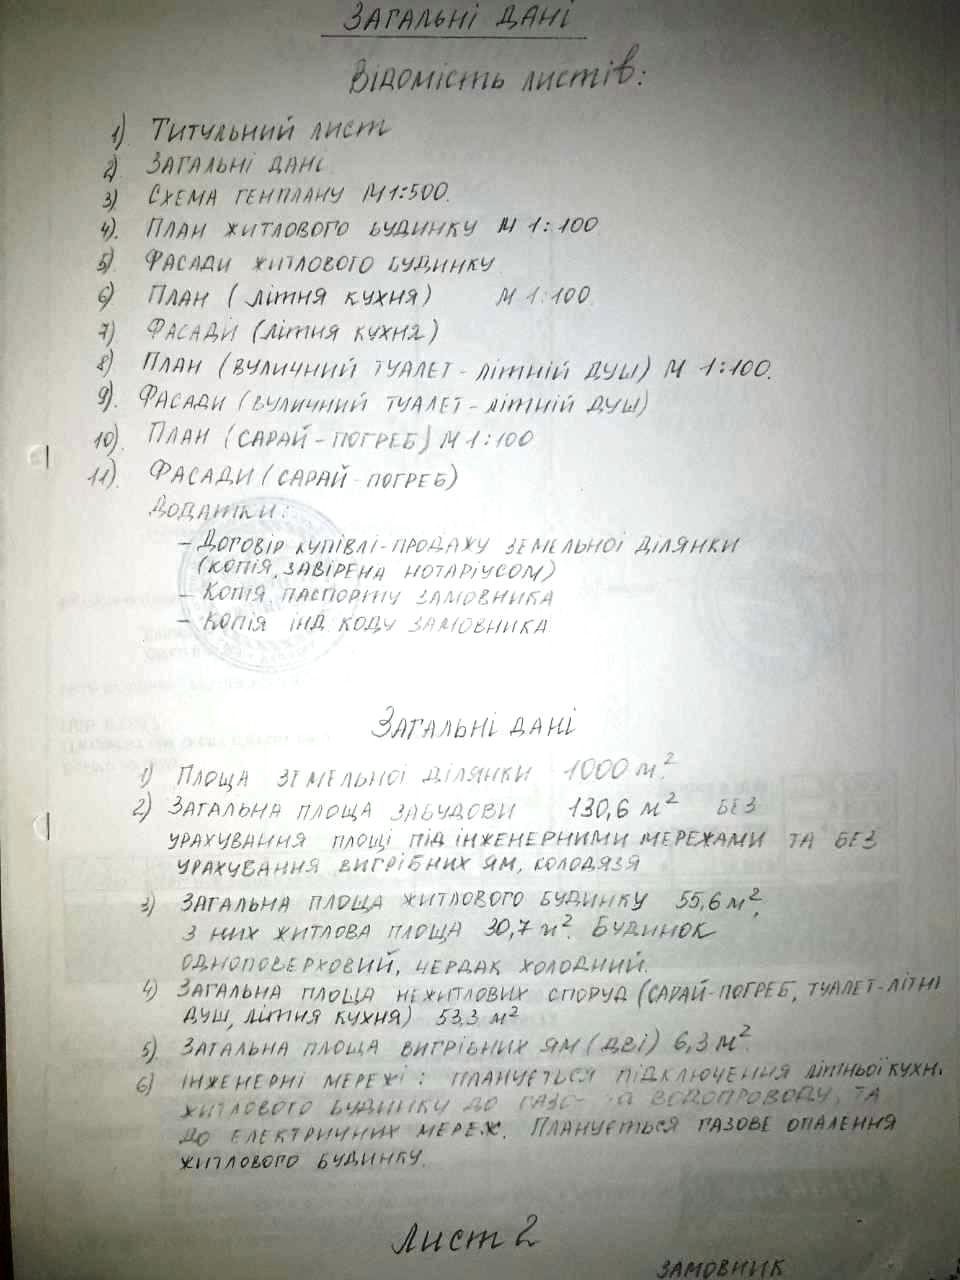 ЗАГАЛЬНІ ДАНІ
ВІДОМІСТЬ ЛИСТІВ:
1) ТИТУЛЬНИЙ ЛИСТ
2) ЗАГАЛЬНІ ДАНІ
3) СХЕМА ГЕНПЛАНУ М1:500.
4). ПЛАН ЖИТЛОВОГО БУДИНКУ М 1:100
5) ФАСАДИ ЖИТЛОВОГО БУДИНКУ
6) ПЛАН (ЛІТНЯ КУХНЯ) М 1:100
7) ФАСАДИ (ЛІТНЯ КУХНЯ)
8) ПЛАН (ВУЛИЧНИЙ ТУАЛЕТ - ЛІТНІЙ ДУШ) М 1:100.
9). ФАСАДИ (ВУЛИЧНИЙ ТУАЛЕТ - ЛІТНІЙ ДУШ)
10). ПЛАН (САРАЙ - ПОГРЕБ) М 1:100
11). ФАСАДИ (САРАЙ - ПОГРЕБ)
ДОДАТКИ:
- ДОГОВІР КУПІВЛІ-ПРОДАЖУ ЗЕМЕЛЬНОЇ ДІЛЯНКИ
(КОПІЯ, ЗАВІРЕНА НОТАРІУСОМ)
- КОПІЯ ПАСПОРТУ ЗАМОВНИКА
- КОПІЯ ІНД. КОДУ ЗАМОВНИКА
ЗАГАЛЬНІ ДАНІ
1) ПЛОЩА ЗЕМЕЛЬНОЇ ДІЛЯНКИ 1000 м².
2) ЗАГАЛЬНА ПЛОЩА ЗАБУДОВИ 130,6 м² БЕЗ
УРАХУВАННЯ ПЛОЩІ ПІД ІНЖЕНЕРНИМИ МЕРЕЖАМИ ТА БЕЗ
УРАХУВАННЯ ВИГРІБНИХ ЯМ, КОЛОДЯЗЯ
3) ЗАГАЛЬНА ПЛОЩА ЖИТЛОВОГО БУДИНКУ 55,6 м²,
З НИХ ЖИТЛОВА ПЛОЩА 30,7 м². БУДИНОК
ОДНОПОВЕРХОВИЙ, ЧЕРДАК ХОЛОДНИЙ.
4) ЗАГАЛЬНА ПЛОЩА НЕЖИТЛОВИХ СПОРУД (САРАЙ-ПОГРЕБ, ТУАЛЕТ-ЛІТНІ
ДУШ, ЛІТНЯ КУХНЯ) 53,3 м²
5) ЗАГАЛЬНА ПЛОЩА ВИГРІБНИХ ЯМ (ДВІ) 6,3 м².
6) ІНЖЕНЕРНІ МЕРЕЖІ: ПЛАНУЄТЬСЯ ПІДКЛЮЧЕННЯ ЛІТНЬОЇ КУХНІ
ЖИТЛОВОГО БУДИНКУ ДО ГАЗО- ТА ВОДОПРОВОДУ, ТА
ДО ЕЛЕКТРИЧНИХ МЕРЕЖ. ПЛАНУЄТЬСЯ ГАЗОВЕ ОПАЛЕННЯ
ЖИТЛОВОГО БУДИНКУ.
ЛИСТ 2
ЗАМОВНИК